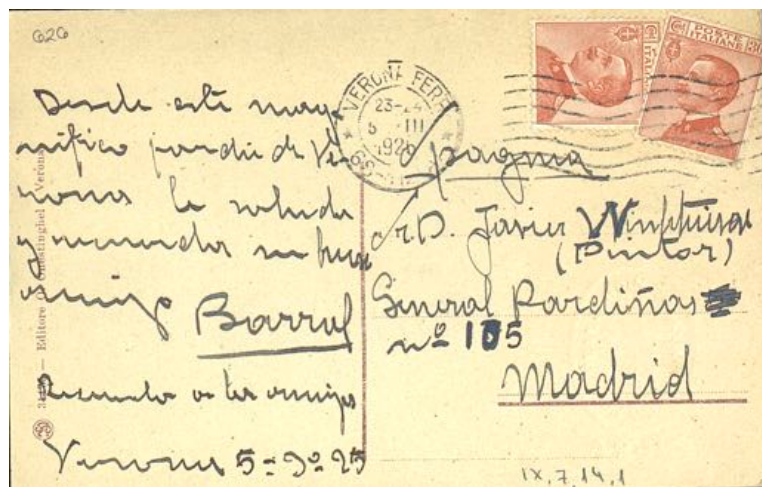 626
Desde este mag-
nifico jardin de Ve-
rona le saluda
y recuerda su buen
amigo
Barral
Recuerdos a los amigos
Verona 5-3º-25
Editore Verona
VERONA FERR
23-24
5 III
192
POSTE
ITALIANE
España
Sr. D. Javier Winthuisen
(Pintor)
General Pardiñas
nº 105
Madrid
IX, 7, 14, 1